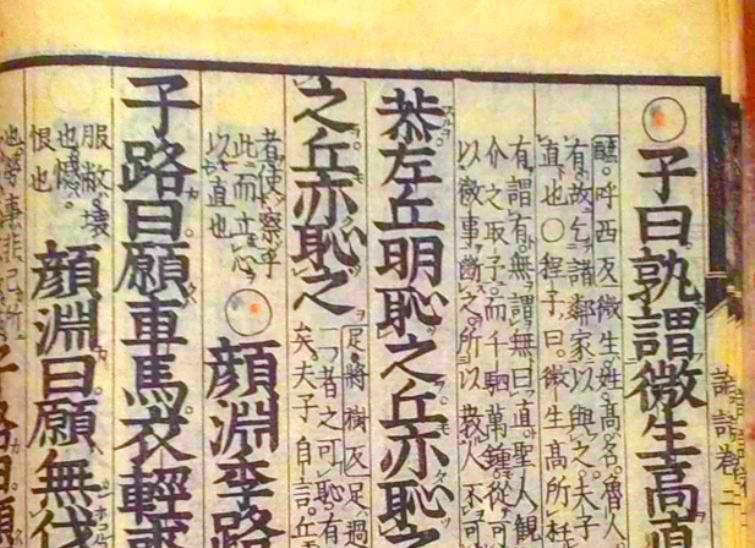 論語卷二
○子曰孰謂微生高直
醯呼西反微生姓高名魯人
有故乞諸鄰家以與之夫子
直也○程子曰微生高所枉
有謂有無謂無曰直聖人觀
介之取予而千駟萬鍾從可
以微事斷之所以敎人不可
恭左丘明恥之丘亦恥之
之丘亦恥之
足將樹反足過
者之可恥有
矣夫子自言丘
者使察乎
此而立心
以直也
○顔淵季路
子路曰願車馬衣輕裘
服敝壞
也憾
恨也
顔淵曰願無伐
也勞事非己所
子路曰願